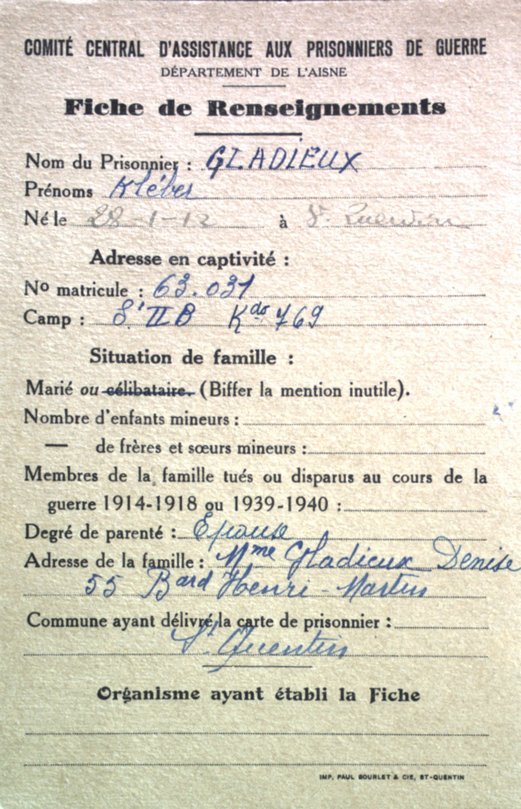 COMITÉ CENTRAL D'ASSISTANCE AUX PRISONNIERS DE GUERRE
DÉPARTEMENT DE L'AISNE
Fiche de Renseignements
Nom du Prisonnier : GLADIEUX
Prénoms Kléber
Né le 28-1-12 à St Quentin
Adresse en captivité :
No matricule : 63.031
Camp : St IIB Kdo 769
Situation de famille :
Marié ou célibataire. (Biffer la mention inutile).
Nombre d'enfants mineurs :
— de frères et sœurs mineurs :
Membres de la famille tués ou disparus au cours de la
guerre 1914-1918 ou 1939-1940 :
Degré de parenté : Epouse
Adresse de la famille : Mme Gladieux Denise
55 Bard Henri-Martin
Commune ayant délivré la carte de prisonnier :
St Quentin
Organisme ayant établi la Fiche
IMP. PAUL BOURLET & CIE, ST-QUENTIN